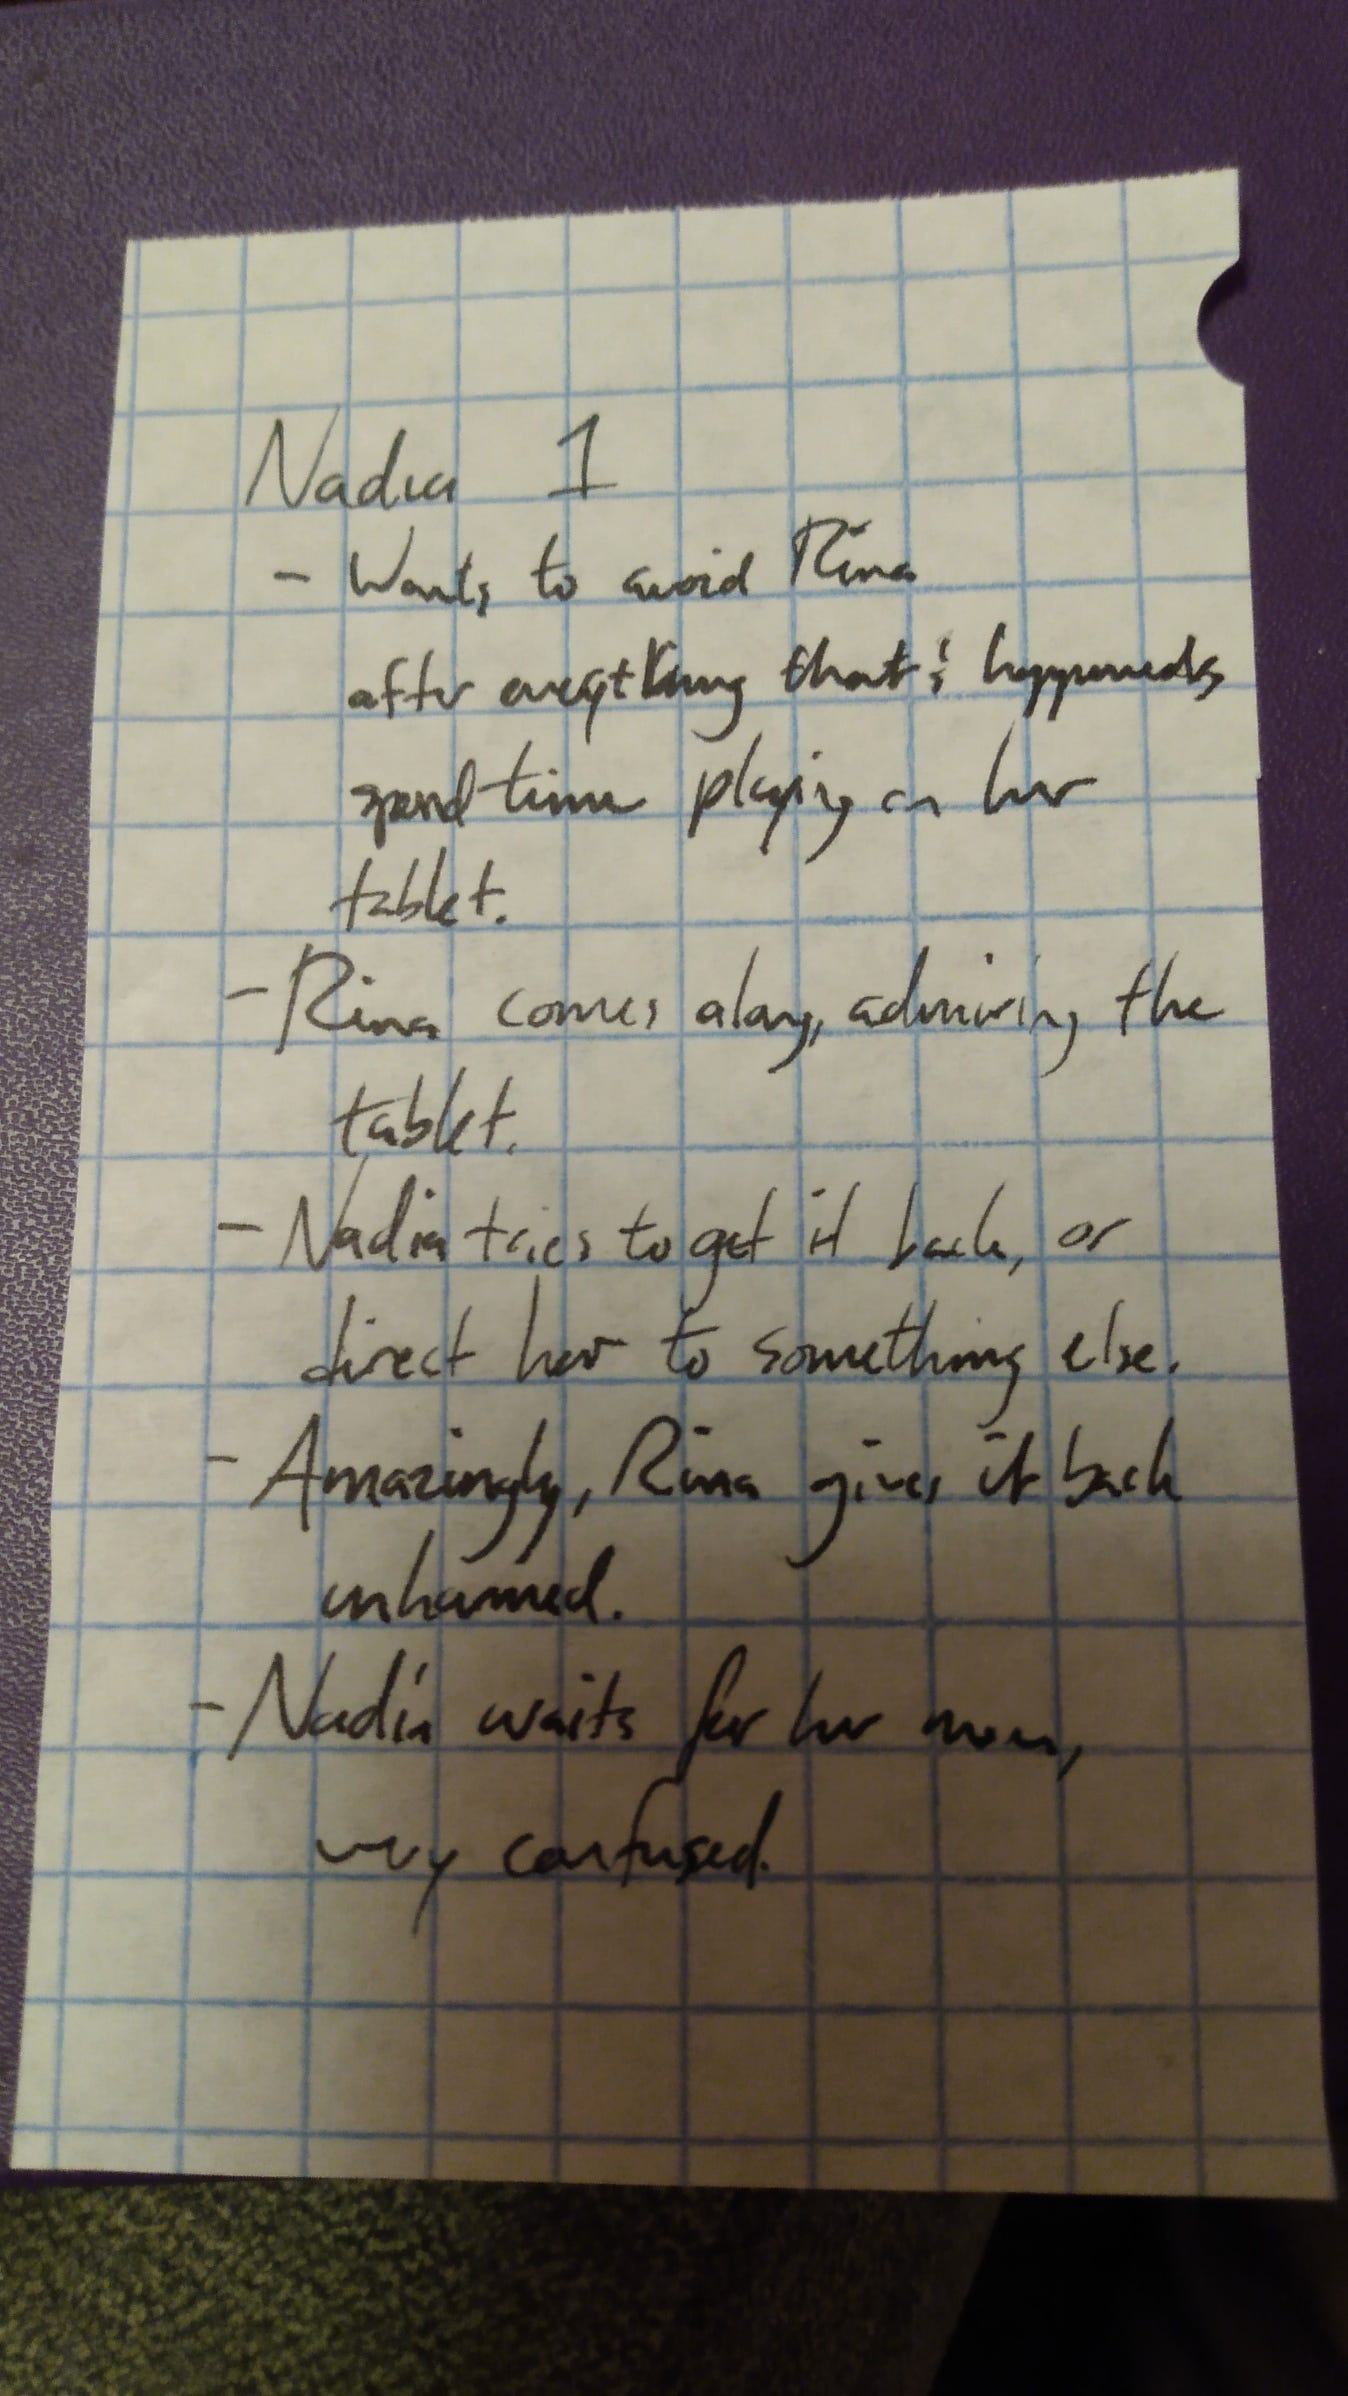 Nadia 1
- Wants to avoid Rina
after everything that's happened,
spend time playing on her
tablet.
- Rina comes along, admiring the
tablet.
- Nadia tries to get it back, or
direct her to something else.
- Amazingly, Rina gives it back
unharmed.
- Nadia waits for her mom,
very confused.